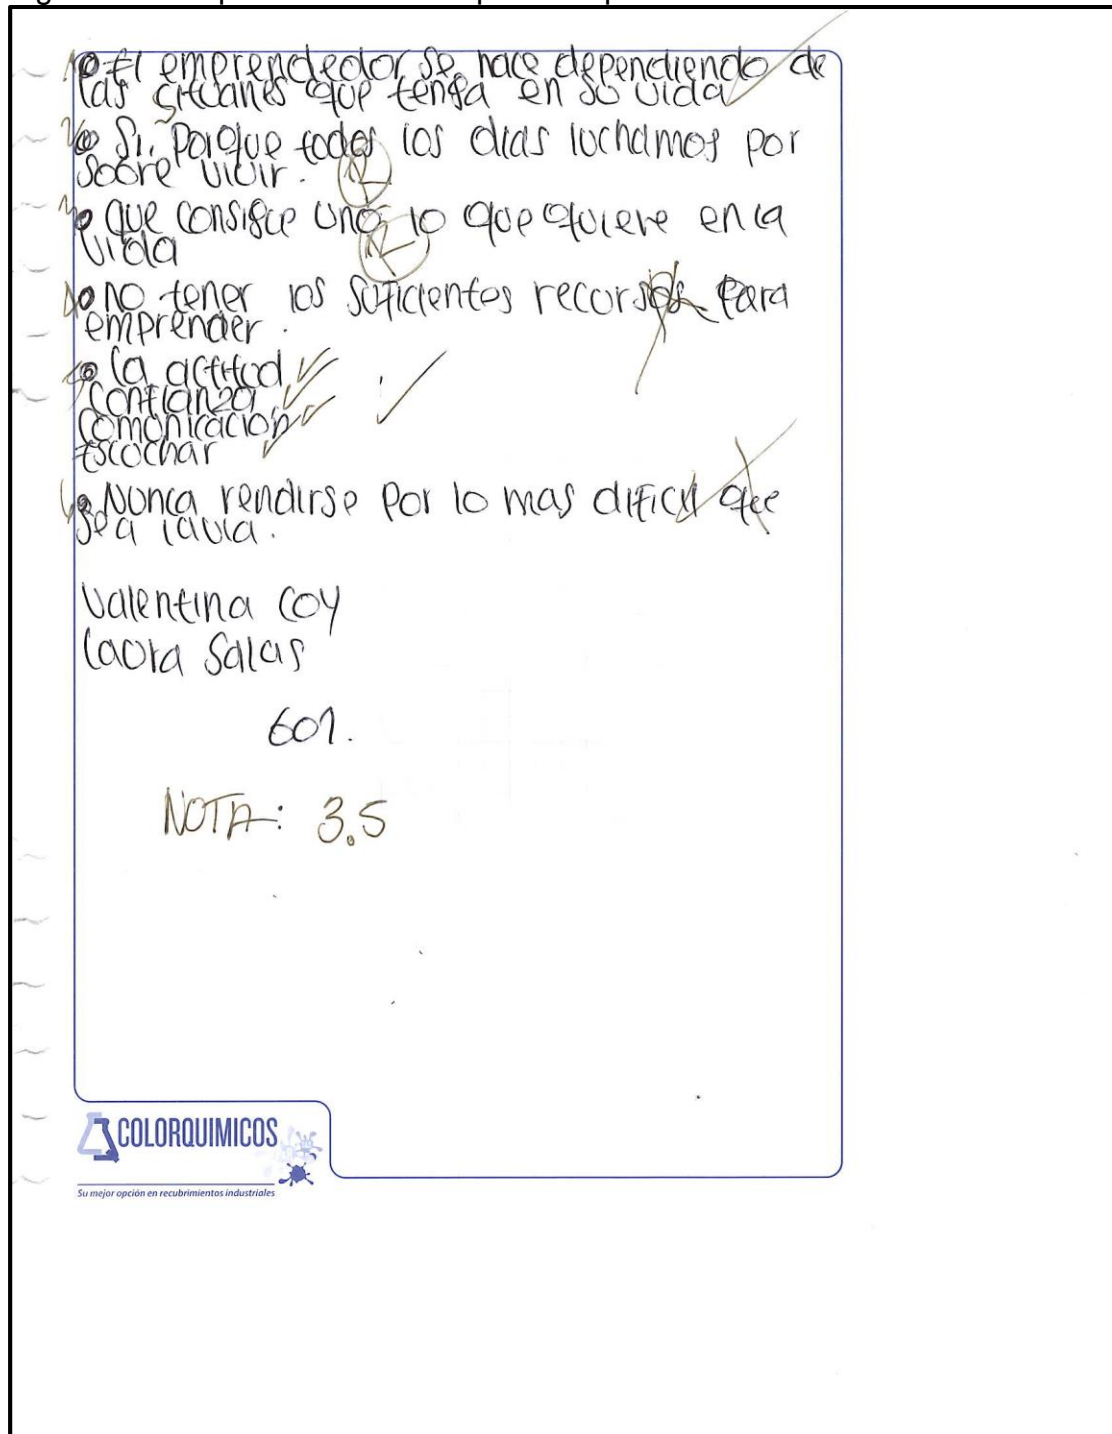 1. El emprendedor se hace dependiendo de
las situanes que tenga en su vida
2. Si, Porque todos los dias luchamos por
sobre vivir. R
3. que consigue uno lo que quiere en la
vida R
4. no tener los suficientes recursos para
emprender.
5. la actitud
confianza
comunicación
Escuchar
6. Nunca rendirse por lo mas dificil que
sea
Valentina Coy
Laura Salas
601.
NOTA: 3.5
COLORQUIMICOS
Su mejor opción en recubrimientos industriales